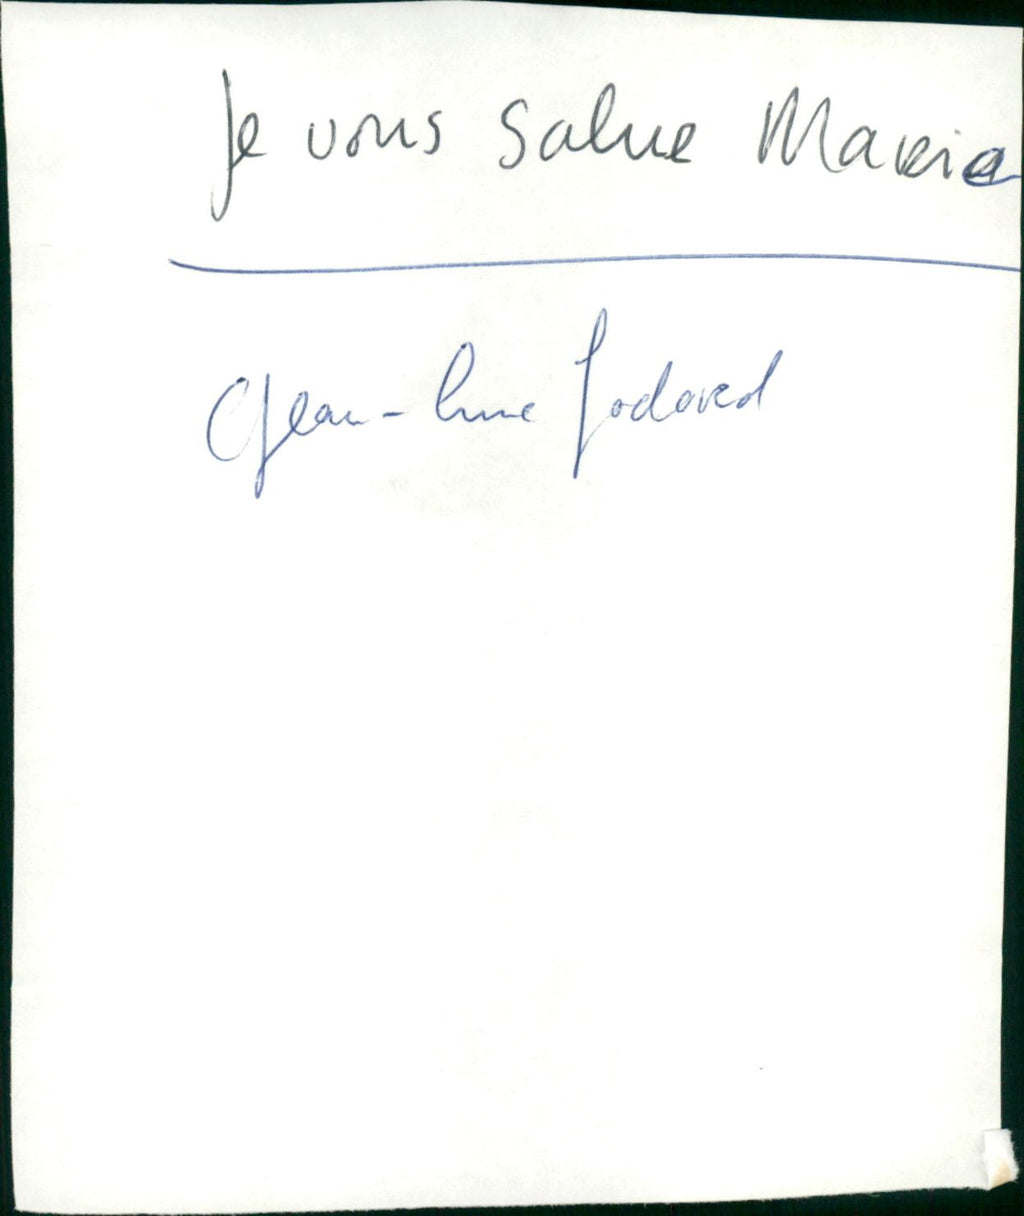 Je vous salue Marie
Jean-Luc Godard